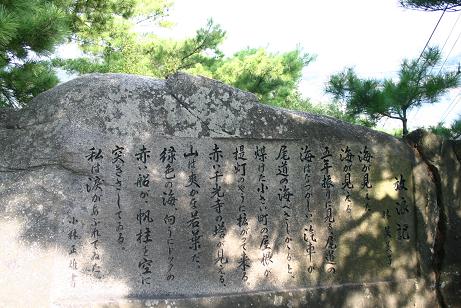 放浪記
林芙美子
海が見えた。
海が見える。
五年振りに見る尾道の
海はなつかしい、汽車が
尾道の海へさしかゝると、
煤けた小さい町の屋根が
提灯のやうに拡がって来る。
赤い千光寺の塔が見える、
山は爽かな若葉だ。
緑色の海向うにドックの
赤い船が、帆柱を空に
突きさしてゐる。
私は涙があふれてゐた。
小林正雄書